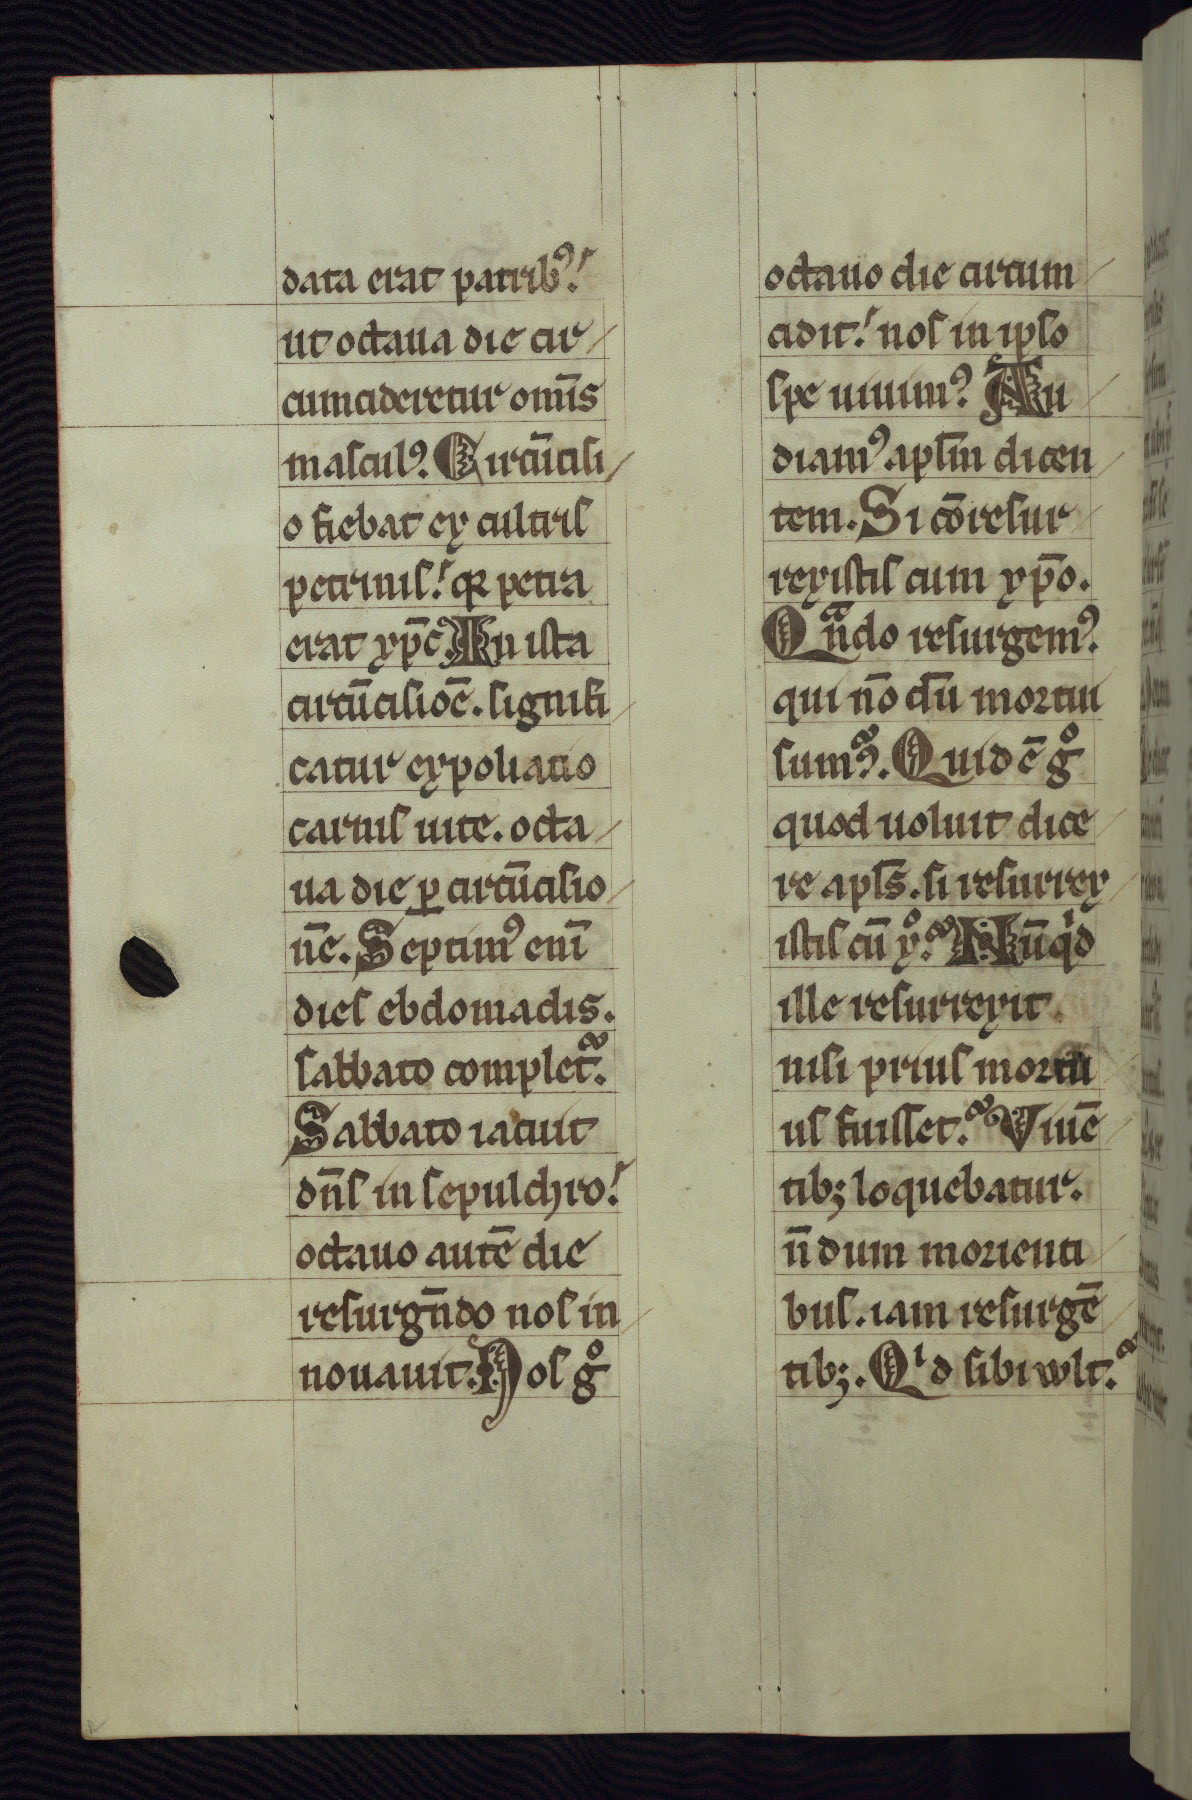 data erat patribꝰ!
ut octaua die cir
cumcideretur omīs
masculꝰ. Circūcisi
o fiebat ex cultris
petrinis! qꝛ petra
erat xp̄c. In ista
circūcisiōe. signifi
catur expoliatio
carnis uite. octa
ua die ꝑ circūcisio
nē. Septimꝰ enī
dies ebdomadis.
sabbato complet᷑.
Sabbato iacuit
dn̄s in sepulchro!
octauo autē die
resurgn̄do nos in
nouauit. Nos gͦ
octauo die circum
cidit! nos in ipso
spe uiuimꝰ. Au
diamꝰ apl̄m dicen
tem. Si cōresur
rexistis cum xp̄o.
Qn̄do resurgemꝰ.
qui nōdū mortui
sumꝰ. Quid ē gͦ
quod uoluit dice
re apl̄s. si resurrex
istis cū xͦ. Nūqͥd
ille resurrexit
nisi prius mortu
us fuisset. Viuē
tibꝫ loquebatur.
n̄dum morienti
bus. iam resurgē
tibꝫ. Qͥd sibi wlt.